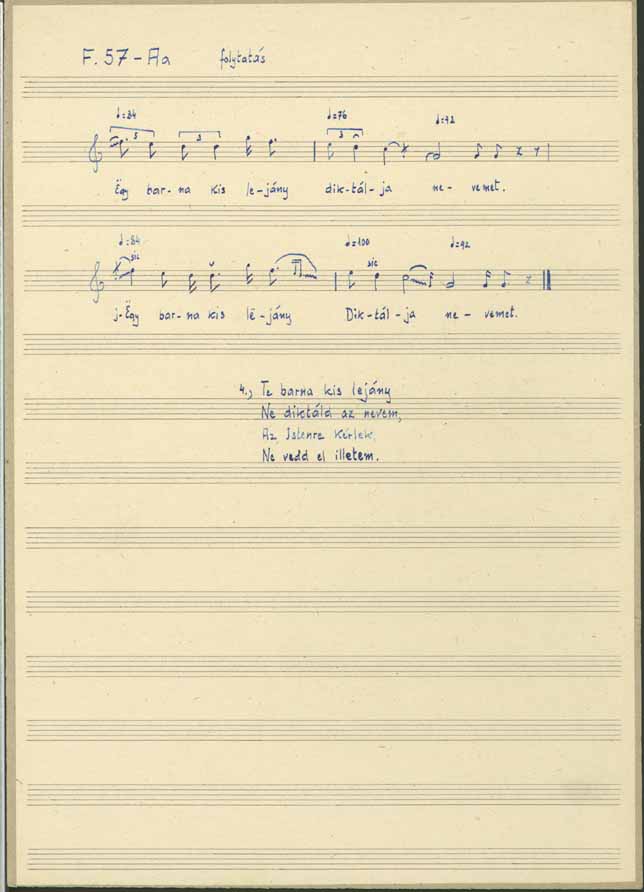 F. 57 - Aa folytatás
♩=84 ♩=76 ♩=92
3 3 3
Ëgy bar- na kis le- jány dik- tál- ja ne- vemet.
♩=84 ♩=100 ♩=92
sic sic
j-Ëgy bar- na kis lë- jány Dik- tál- ja ne- vemet.
4., Te barna kis lejány
Ne diktáld az nevem,
Az Istenre kérlek,
Ne vedd el illetem.